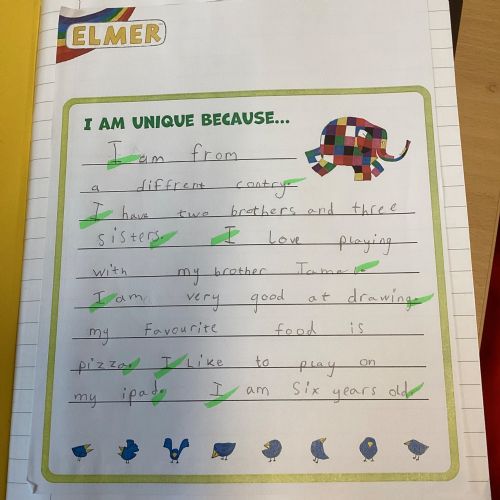 ELMER
I AM UNIQUE BECAUSE...
I am from
a diffrent contry.
I have two brothers and three
sisters. I Love playing
with my brother
I am very good at drawing.
my Favourite food is
pizza. I Like to play on
my ipad. I am Six years old.